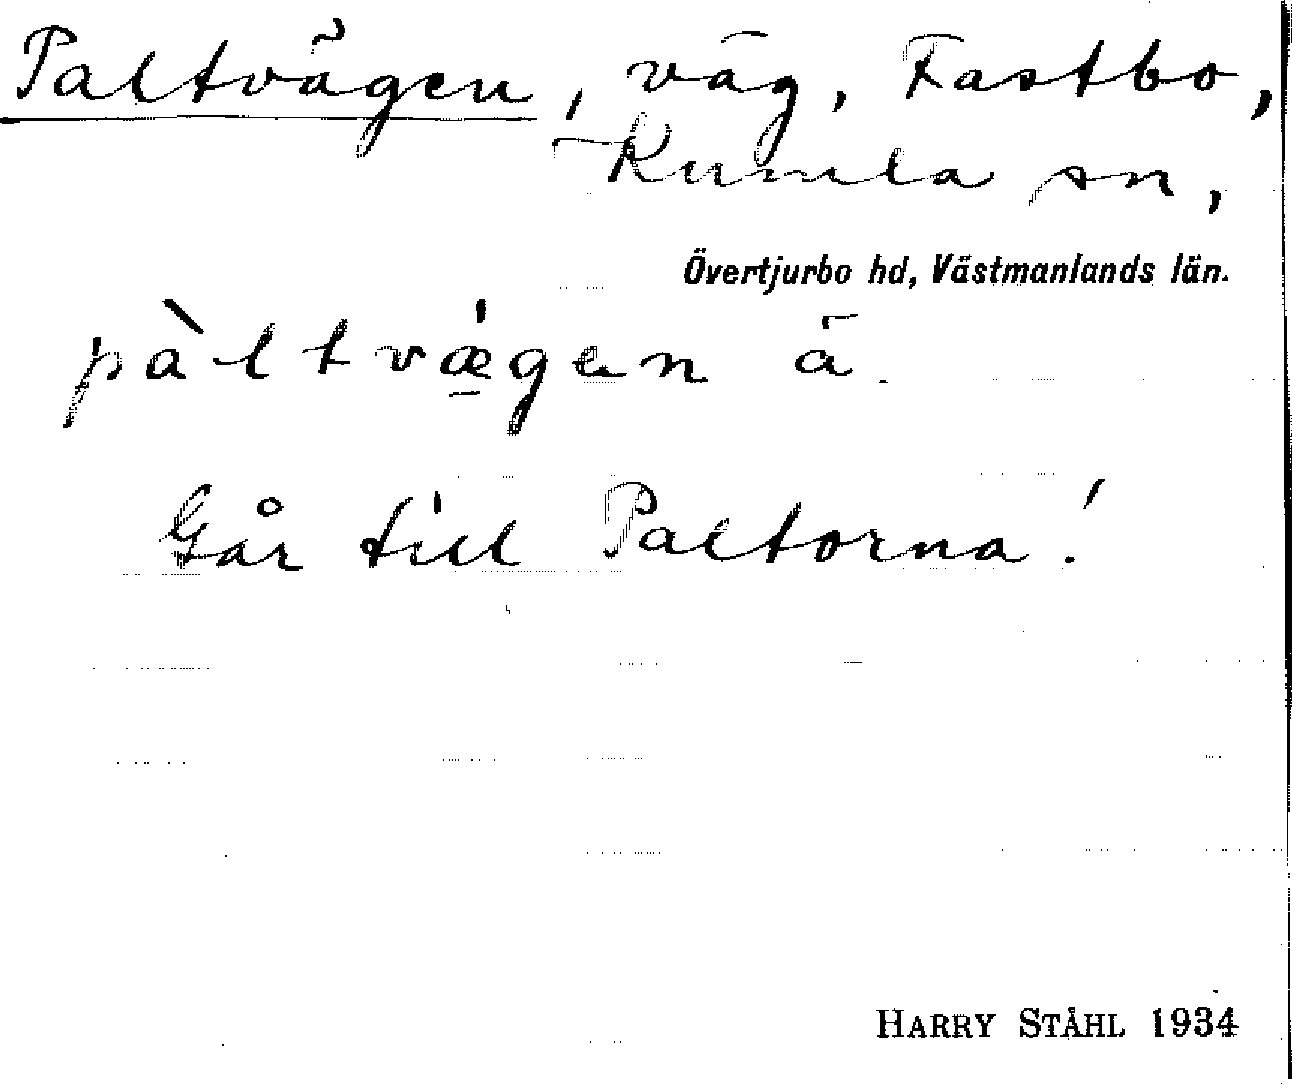 Paltvägen, väg, Fastbo,
Kumla sn,
Övertjurbo hd, Västmanlands län.
pàltvǽgen ä.
Går till Paltorna!
HARRY STÅHL 1934